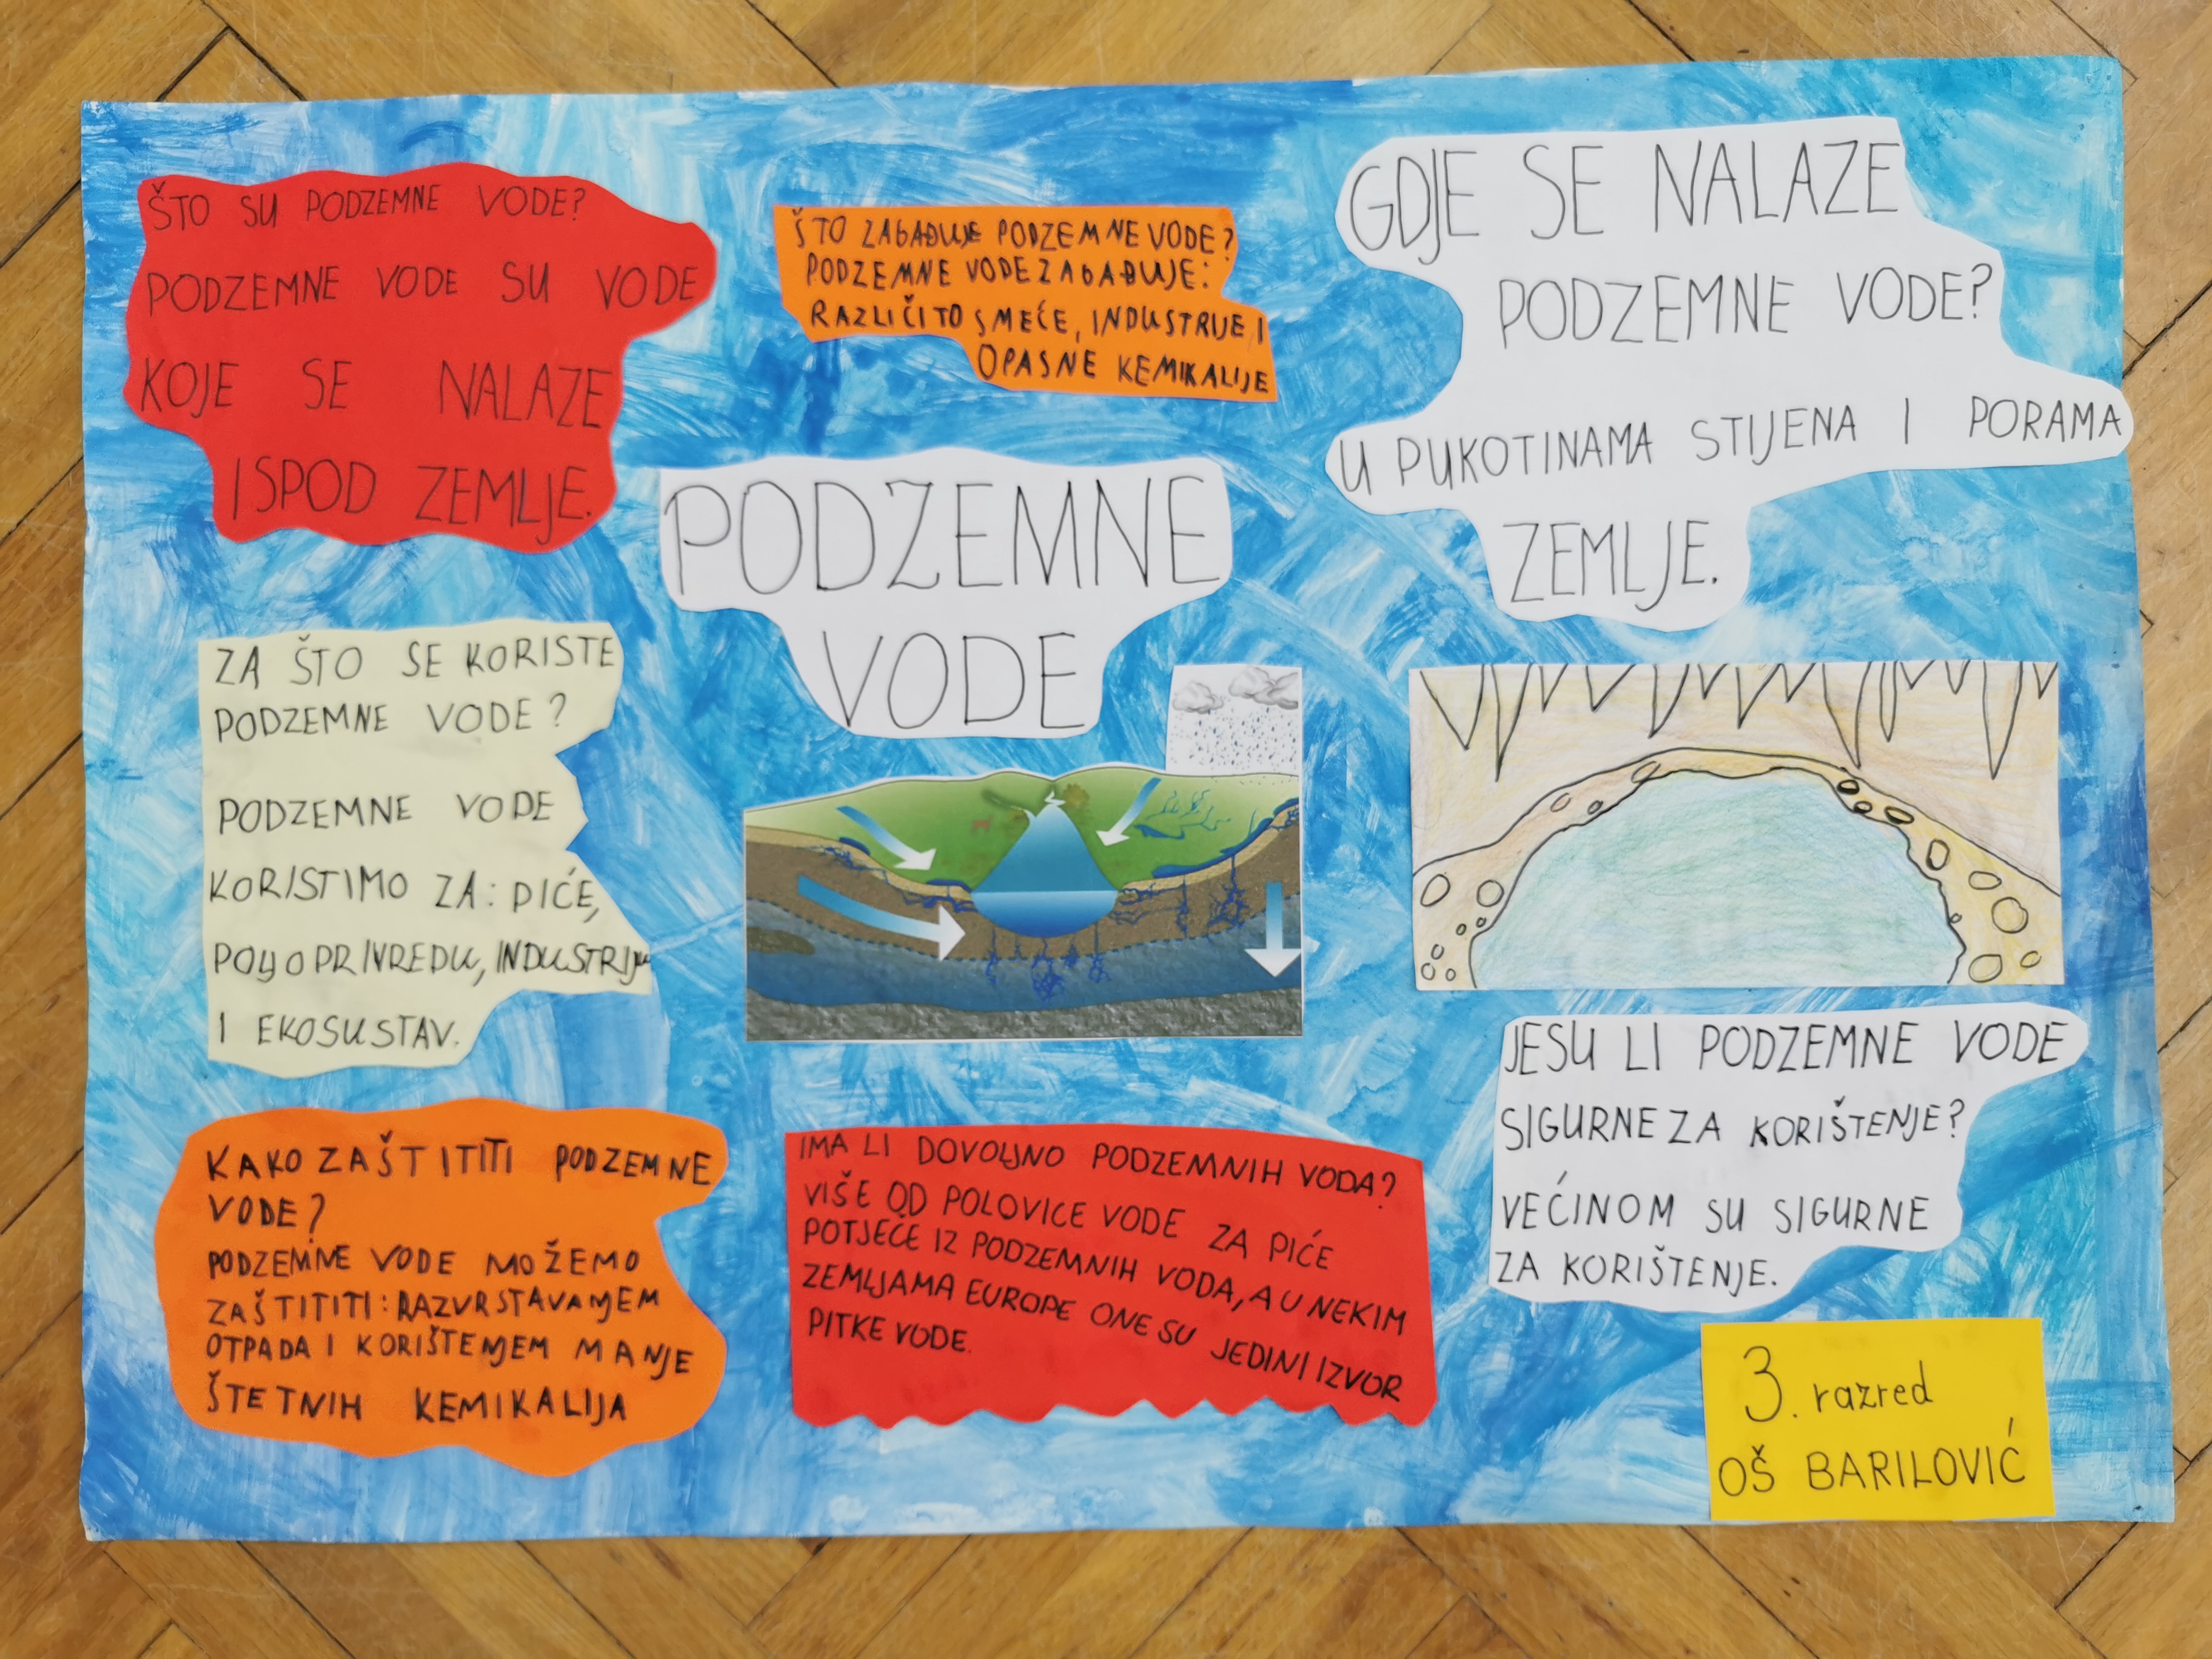 ŠTO SU PODZEMNE VODE?
PODZEMNE VODE SU VODE
KOJE SE NALAZE
ISPOD ZEMLJE.
ŠTO ZAGAĐUJE PODZEMNE VODE?
PODZEMNE VODE ZAGAĐUJE:
RAZLIČITO SMEĆE, INDUSTRIJE I
OPASNE KEMIKALIJE
GDJE SE NALAZE
PODZEMNE VODE?
U PUKOTINAMA STIJENA I PORAMA
ZEMLJE.
PODZEMNE
VODE
ZA ŠTO SE KORISTE
PODZEMNE VODE?
PODZEMNE VODE
KORISTIMO ZA: PIĆE,
POLJOPRIVREDU, INDUSTRIJU
I EKOSUSTAV.
KAKO ZAŠTITITI PODZEMNE
VODE?
PODZEMNE VODE MOŽEMO
ZAŠTITITI: RAZVRSTAVANJEM
OTPADA I KORIŠTENJEM MANJE
ŠTETNIH KEMIKALIJA
IMA LI DOVOLJNO PODZEMNIH VODA?
VIŠE OD POLOVICE VODE ZA PIĆE
POTJEČE IZ PODZEMNIH VODA, A U NEKIM
ZEMLJAMA EUROPE ONE SU JEDINI IZVOR
PITKE VODE.
JESU LI PODZEMNE VODE
SIGURNE ZA KORIŠTENJE?
VEĆINOM SU SIGURNE
ZA KORIŠTENJE.
3. razred
OŠ BARILOVIĆ